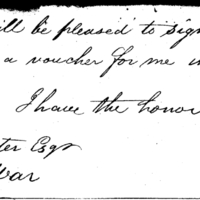 ill be pleased to sign
a voucher for me in
I have the honor
ter Esqr
War